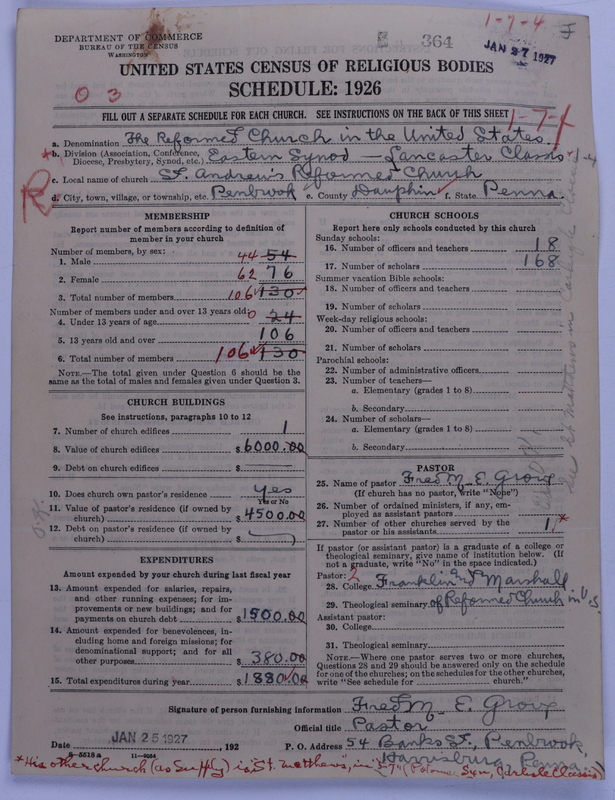 1-7-4
DEPARTMENT OF COMMERCE
BUREAU OF THE CENSUS
WASHINGTON
E 364
JAN 27 1927
UNITED STATES CENSUS OF RELIGIOUS BODIES
SCHEDULE: 1926
0 3
FILL OUT A SEPARATE SCHEDULE FOR EACH CHURCH. SEE INSTRUCTIONS ON THE BACK OF THIS SHEET
1-7-4
a. Denomination The Reformed Church in the United States.
*b. Division (Association, Conference, Diocese, Presbytery, Synod, etc.) Eastern Synod — Lancaster Classis
c. Local name of church St. Andrew's Reformed Church
R
d. City, town, village, or township, etc. Penbrook e. County Dauphin f. State Penna.
MEMBERSHIP
Report number of members according to definition of
member in your church
Number of members, by sex:
1. Male 44 54
2. Female 62 76
3. Total number of members 106 130
Number of members under and over 13 years old:
4. Under 13 years of age 0 24
5. 13 years old and over 106
6. Total number of members 106 130
NOTE.—The total given under Question 6 should be
same as the total of males and females given under Question 3.
CHURCH BUILDINGS
See instructions, paragraphs 10 to 12
7. Number of church edifices 1
8. Value of church edifices $6000.00
9. Debt on church edifices $
10. Does church own pastor's residence yes
Yes or No
11. Value of pastor's residence (if owned by
church) $4500.00
12. Debt on pastor's residence (if owned by
church) $
EXPENDITURES
Amount expended by your church during last fiscal year
13. Amount expended for salaries, repairs,
and other running expenses; for im-
provements or new buildings; and for
payments on church debt $1500.00
14. Amount expended for benevolences, in-
cluding home and foreign missions; for
denominational support; and for all
other purposes $380.00
15. Total expenditures during year $1880.00
CHURCH SCHOOLS
Report here only schools conducted by this church
Sunday schools:
16. Number of officers and teachers 18
17. Number of scholars 168
Summer vacation Bible schools:
18. Number of officers and teachers
19. Number of scholars
Week-day religious schools:
20. Number of officers and teachers
21. Number of scholars
Parochial schools:
22. Number of administrative officers
23. Number of teachers—
a. Elementary (grades 1 to 8)
b. Secondary
24. Number of scholars—
a. Elementary (grades 1 to 8)
b. Secondary
PASTOR
25. Name of pastor Fred M. E. Grove
(If church has no pastor, write "None")
26. Number of ordained ministers, if any, em-
ployed as assistant pastors
27. Number of other churches served by the
pastor or his assistants 1*
If pastor (or assistant pastor) is a graduate of a college or
theological seminary, give name of institution below. (If
not a graduate, write "No" in the space indicated.)
Pastor: 2
28. College Franklin and Marshall
29. Theological seminary of Reformed Church in U.S.
Assistant pastor:
30. College
31. Theological seminary
NOTE.—Where one pastor serves two or more churches,
Questions 28 and 29 should be answered only on the schedule
for one of the churches; on the schedules for the other churches,
write "See schedule for church."
Signature of person furnishing information Fred M. E. Grove
Official title Pastor
Date JAN 25 1927, 192
P. O. Address 54 Banks St., Penbrook,
Harrisburg, Penna.
8-5518a 11-9084
*His other church (as supply) is "St. Matthew's", in "3-7" (Potomac Syn, Carlisle Classis)